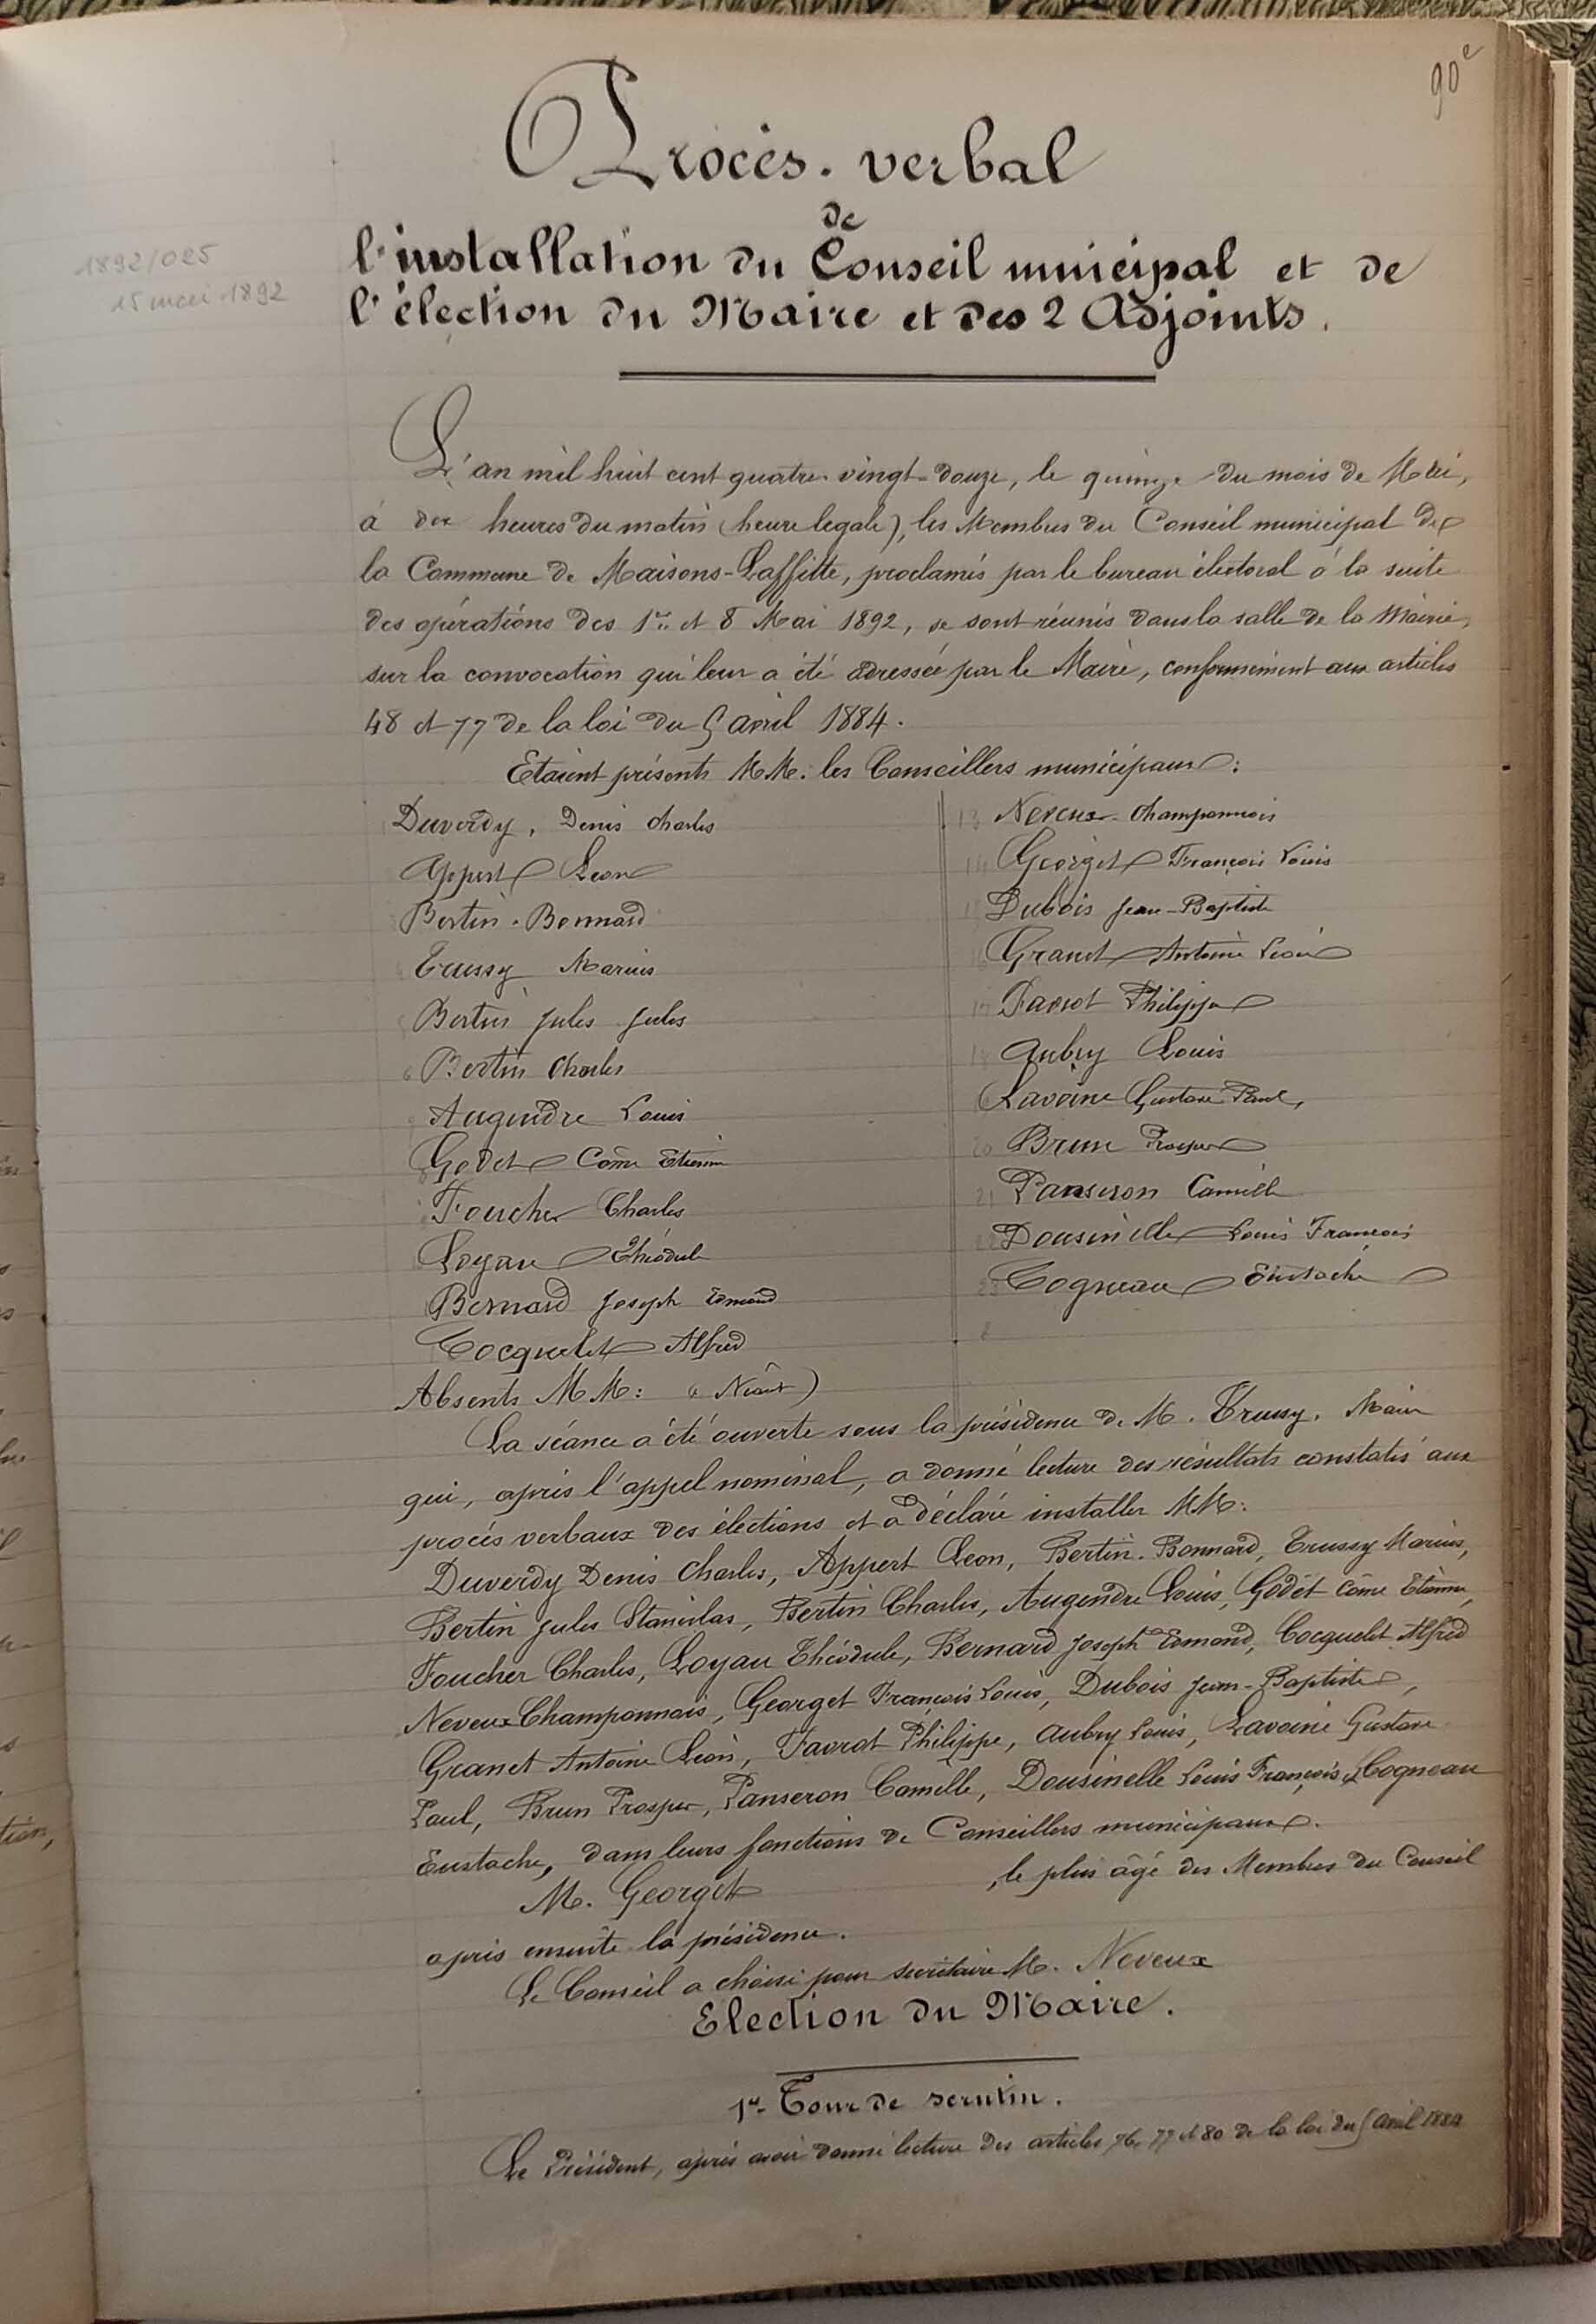 90e
Procès-verbal
de
1892/025
l'installation du Conseil municipal et de
15 mai 1892
l'élection du Maire et des 2 Adjoints.
L'an mil huit cent quatre-vingt-douze, le quinze du mois de Mai,
à dix heures du matin (heure légale), les Membres du Conseil municipal de
la Commune de Maisons-Laffitte, proclamés par le bureau électoral à la suite
des opérations des 1er et 8 Mai 1892, se sont réunis dans la salle de la Mairie,
sur la convocation qui leur a été adressée par le Maire, conformément aux articles
48 et 77 de la loi du 5 avril 1884.
Etaient présents MM. les Conseillers municipaux :
Duverdy, Denis Charles
Appert Leon
Bertin-Bonnard
Trussy Marius
Bertin Jules Jules
6 Bertin Charles
Augendre Louis
Godet Côme Etienne
Foucher Charles
Loyau Théodule
Bernard Joseph Edmond
Cocquelet Alfred
13 Neveux-Champonnois
14 Georget François Louis
Dubois Jean-Baptiste
Granet Antoine Léon
17 Favrot Philippe
18 Aubry Louis
Lavoine Gustave Paul,
20 Brun Prosper
21 Panseron Camille
Dousinelle Louis François
23 Cogneau Eustache
Absents MM : (Néant)
La séance a été ouverte sous la présidence de M. Trussy, Maire
qui, après l'appel nominal, a donné lecture des résultats constatés aux
procès verbaux des élections et a déclaré installer MM :
Duverdy Denis Charles, Appert Leon, Bertin-Bonnard, Trussy Marius,
Bertin Jules Stanislas, Bertin Charles, Augendre Louis, Godet Côme Etienne,
Foucher Charles, Loyau Théodule, Bernard Joseph Edmond, Cocquelet Alfred
Neveux-Champonnois, Georget François Louis, Dubois Jean-Baptiste,
Granet Antoine Léon, Favrot Philippe, Aubry Louis, Lavoine Gustave
Paul, Brun Prosper, Panseron Camille, Dousinelle Louis François, & Cogneau
Eustache, dans leurs fonctions de Conseillers municipaux.
M. Georget , le plus âgé des Membres du Conseil
a pris ensuite la présidence.
Le Conseil a choisi pour secrétaire M. Neveux
Election du Maire.
1er Tour de scrutin.
Le Président, après avoir donné lecture des articles 76, 77 et 80 de la loi du 5 avril 1884